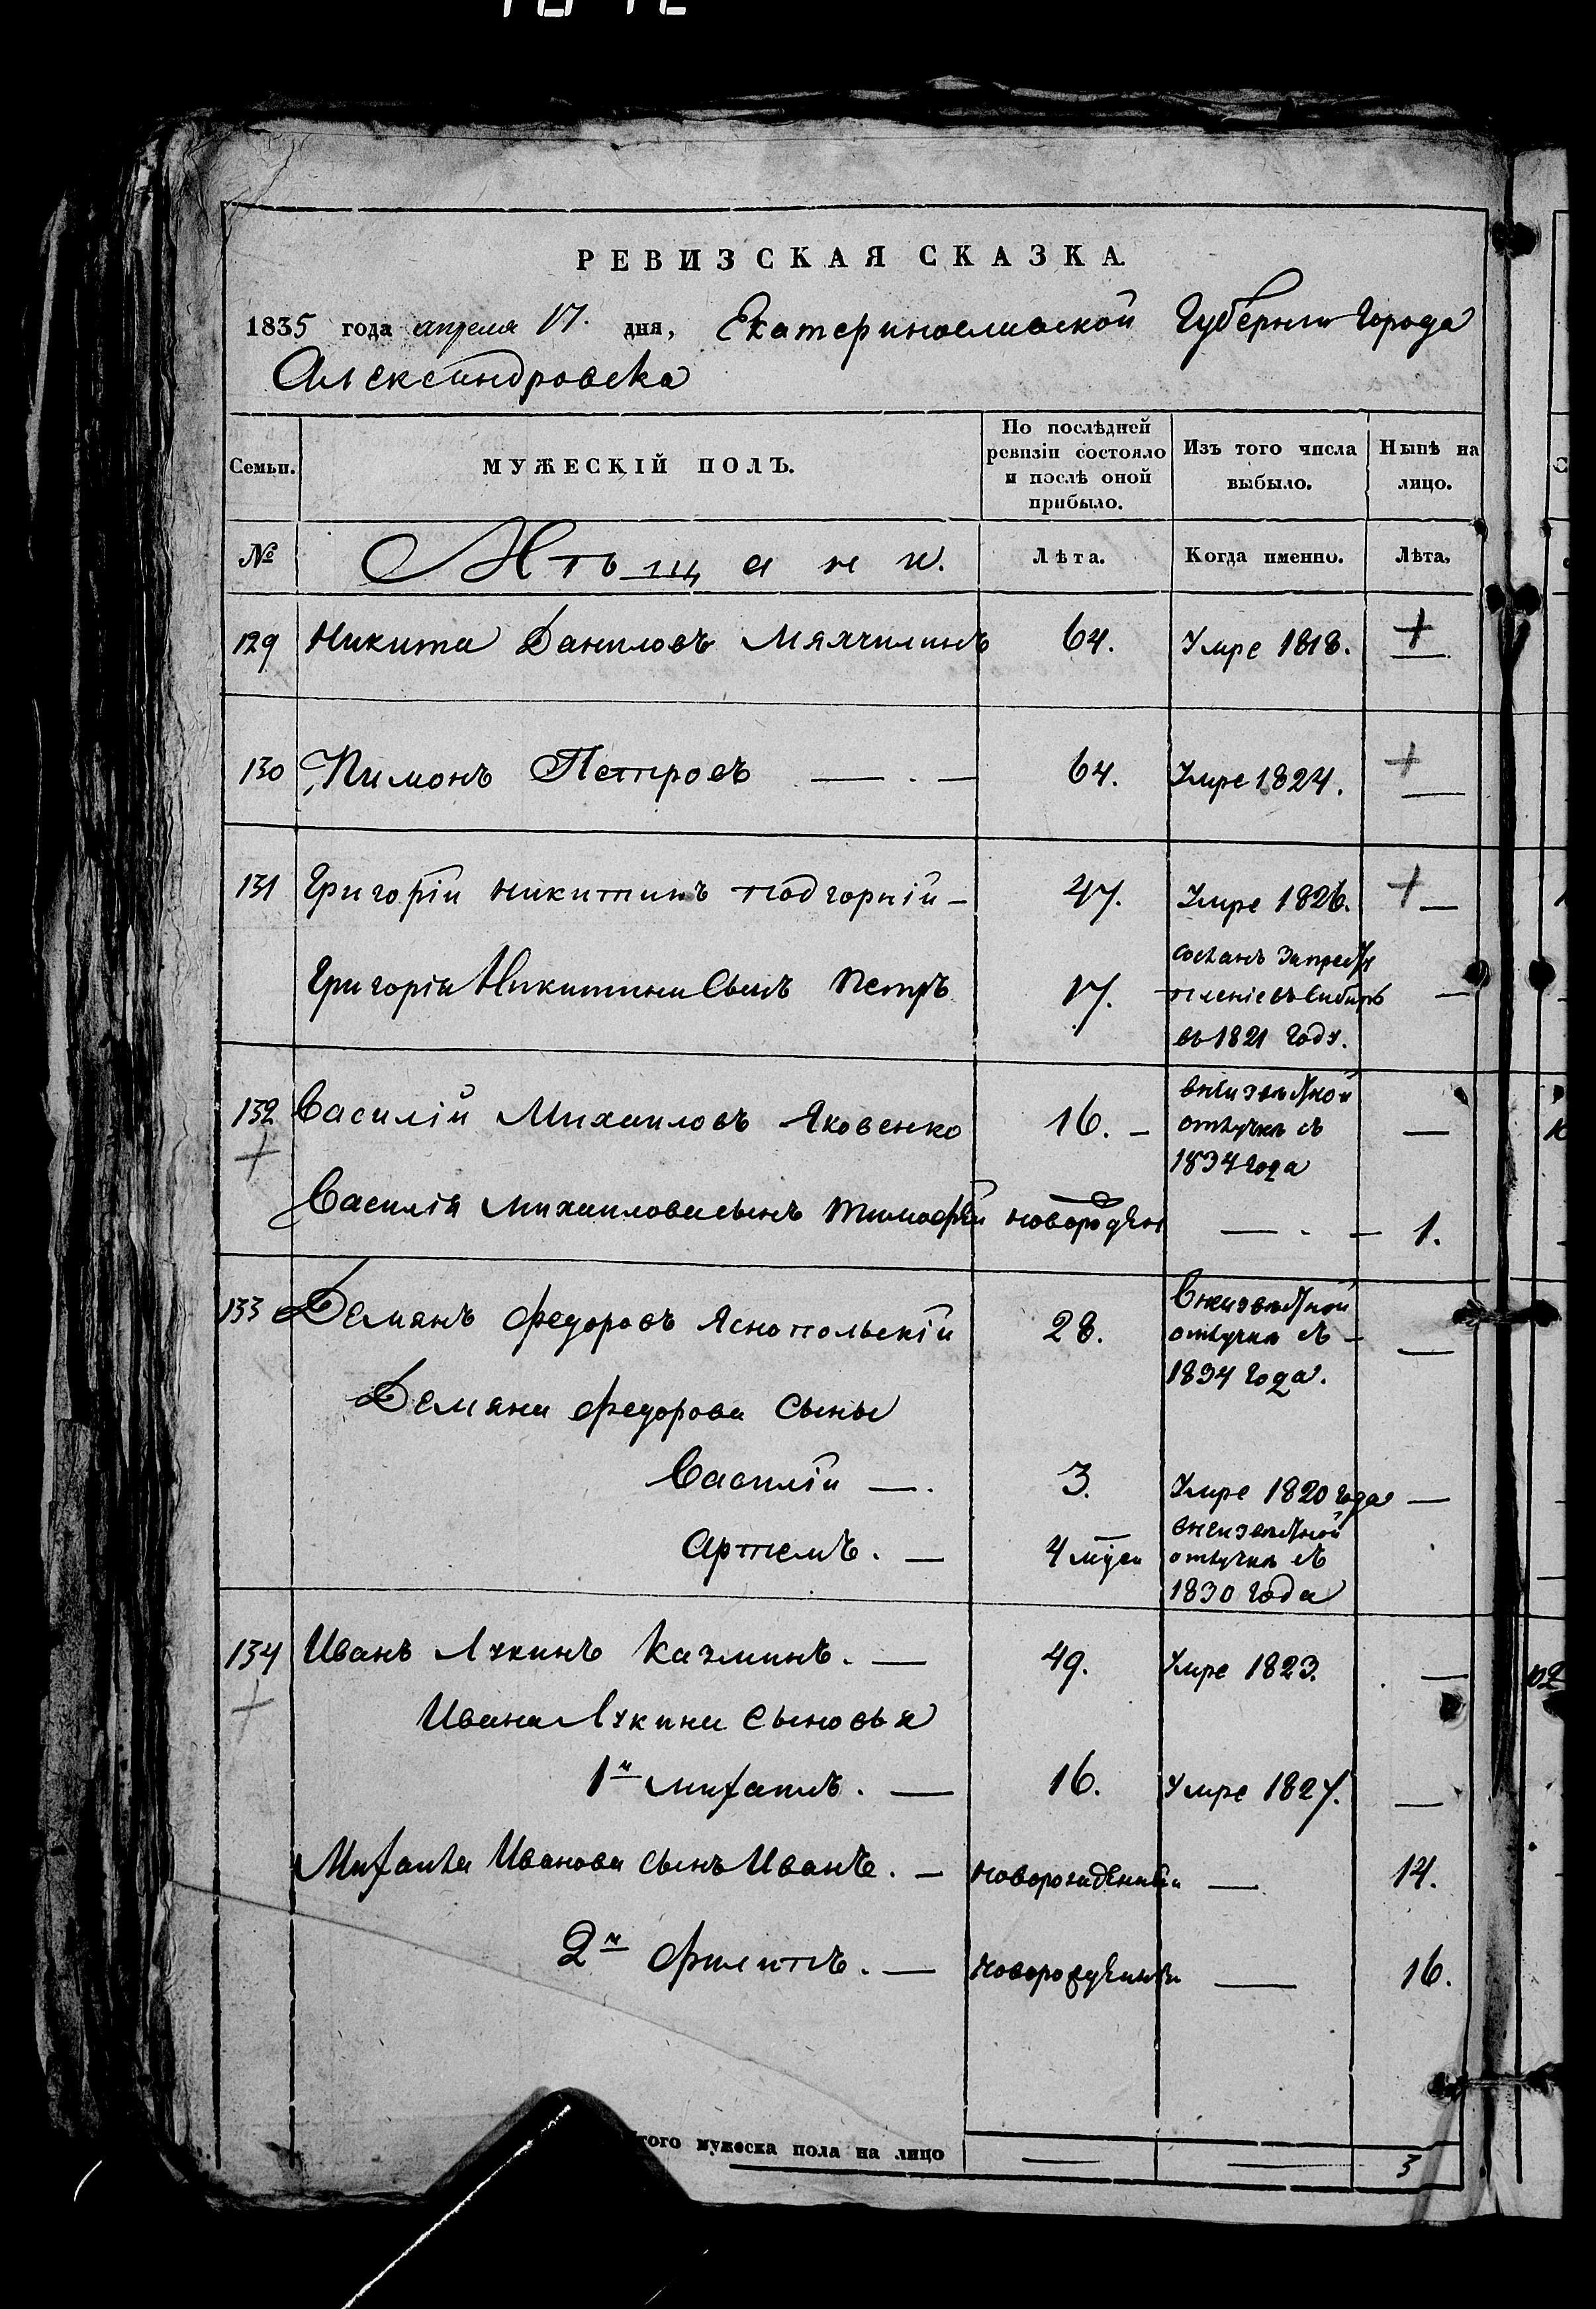 РЕВИЗСКАЯ СКАЗКА
1835 года апреля 17. дня, Екатеринославской Губернии Города
Александровска
Семьи. МУЖЕСКІЙ ПОЛЪ. По послѣдней ревизіи состояло и послѣ оной прибыло. Изъ того числа выбыло. Нынѣ на лицо.
№ Мѣщане и. Лѣта. Когда именно. Лѣта,
129 Никита Даниловъ 64. Умре 1818. +
130 Пимонъ Петровъ — . — 64. Умре 1824. +
131 Григорій Никитинъ Подгорній — 47. Умре 1826. + —
Сосланъ За
Григорія Никитина Сынъ Петръ 17. пленіе въ Сибирь —
въ 1821 Году.
132 Василій Михаиловъ Яковенко 16. — внеизвѣстной —
+ отлучкѣ съ
1834 года
Василія Михаилова сынъ Тимофей новорожден — . — 1.
133 Демянъ Федоровъ Яснопольскій 28. Внеизвѣстной
отлучкѣ съ — —
1834 года.
Демяна Федорова Сыны
Василій — . 3. Умре 1820 года —
Артемъ . — 4 внеизвѣстной
отлучкѣ съ
1830 года
134 Иванъ Лукинъ Казминъ . — 49. Умре 1823. —
+
Ивана Лукина Сыновья
1й Михаилъ . — 16. Умре 1827. —
Михаила Иванова сынъ Иванъ . — новорожденный — 14.
2й Филипъ . — новорожденный — 16.
того мужеска пола на лицо — — 3